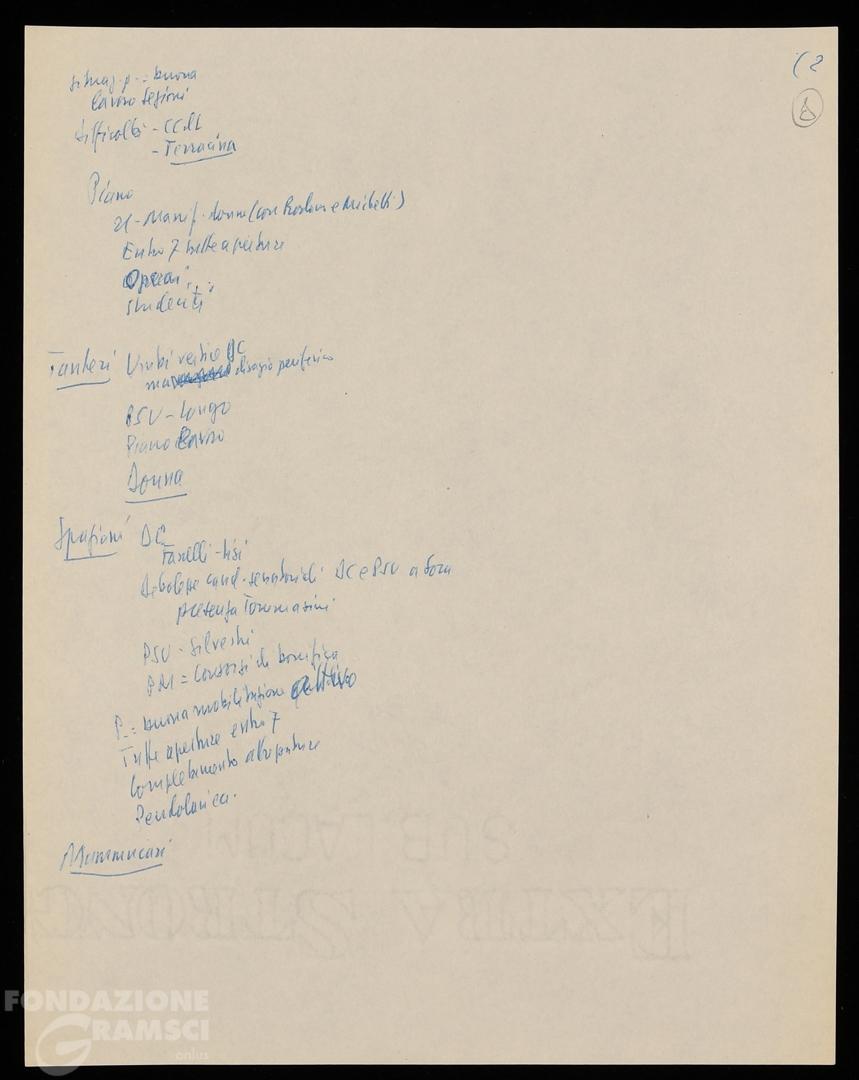 (2
situaz. p. = buona
lavoro sezioni
difficoltà - CCdL
- Terracina
Piano
21 - Manif. donne (con Rodano e Michetti)
Entro 7 tutte aperture
Operai
studenti
Vertice DC
ma disagio periferico
PSU - Longo
Piano lavoro
Donna
Spaziani DC
Fanelli - Lisi
Debolezze cand. senatoriali DC e PSU a Sora
presenza Tommasini
PSU - Silvestri
PM = Consorzi di bonifica
P. = buona mobilitazione attivo
Tutte aperture entro 7
Completamento
Pendolari ca.
Mammucari
SUB LACU
EXTRA STRONG
FONDAZIONE
GRAMSCI
onlus